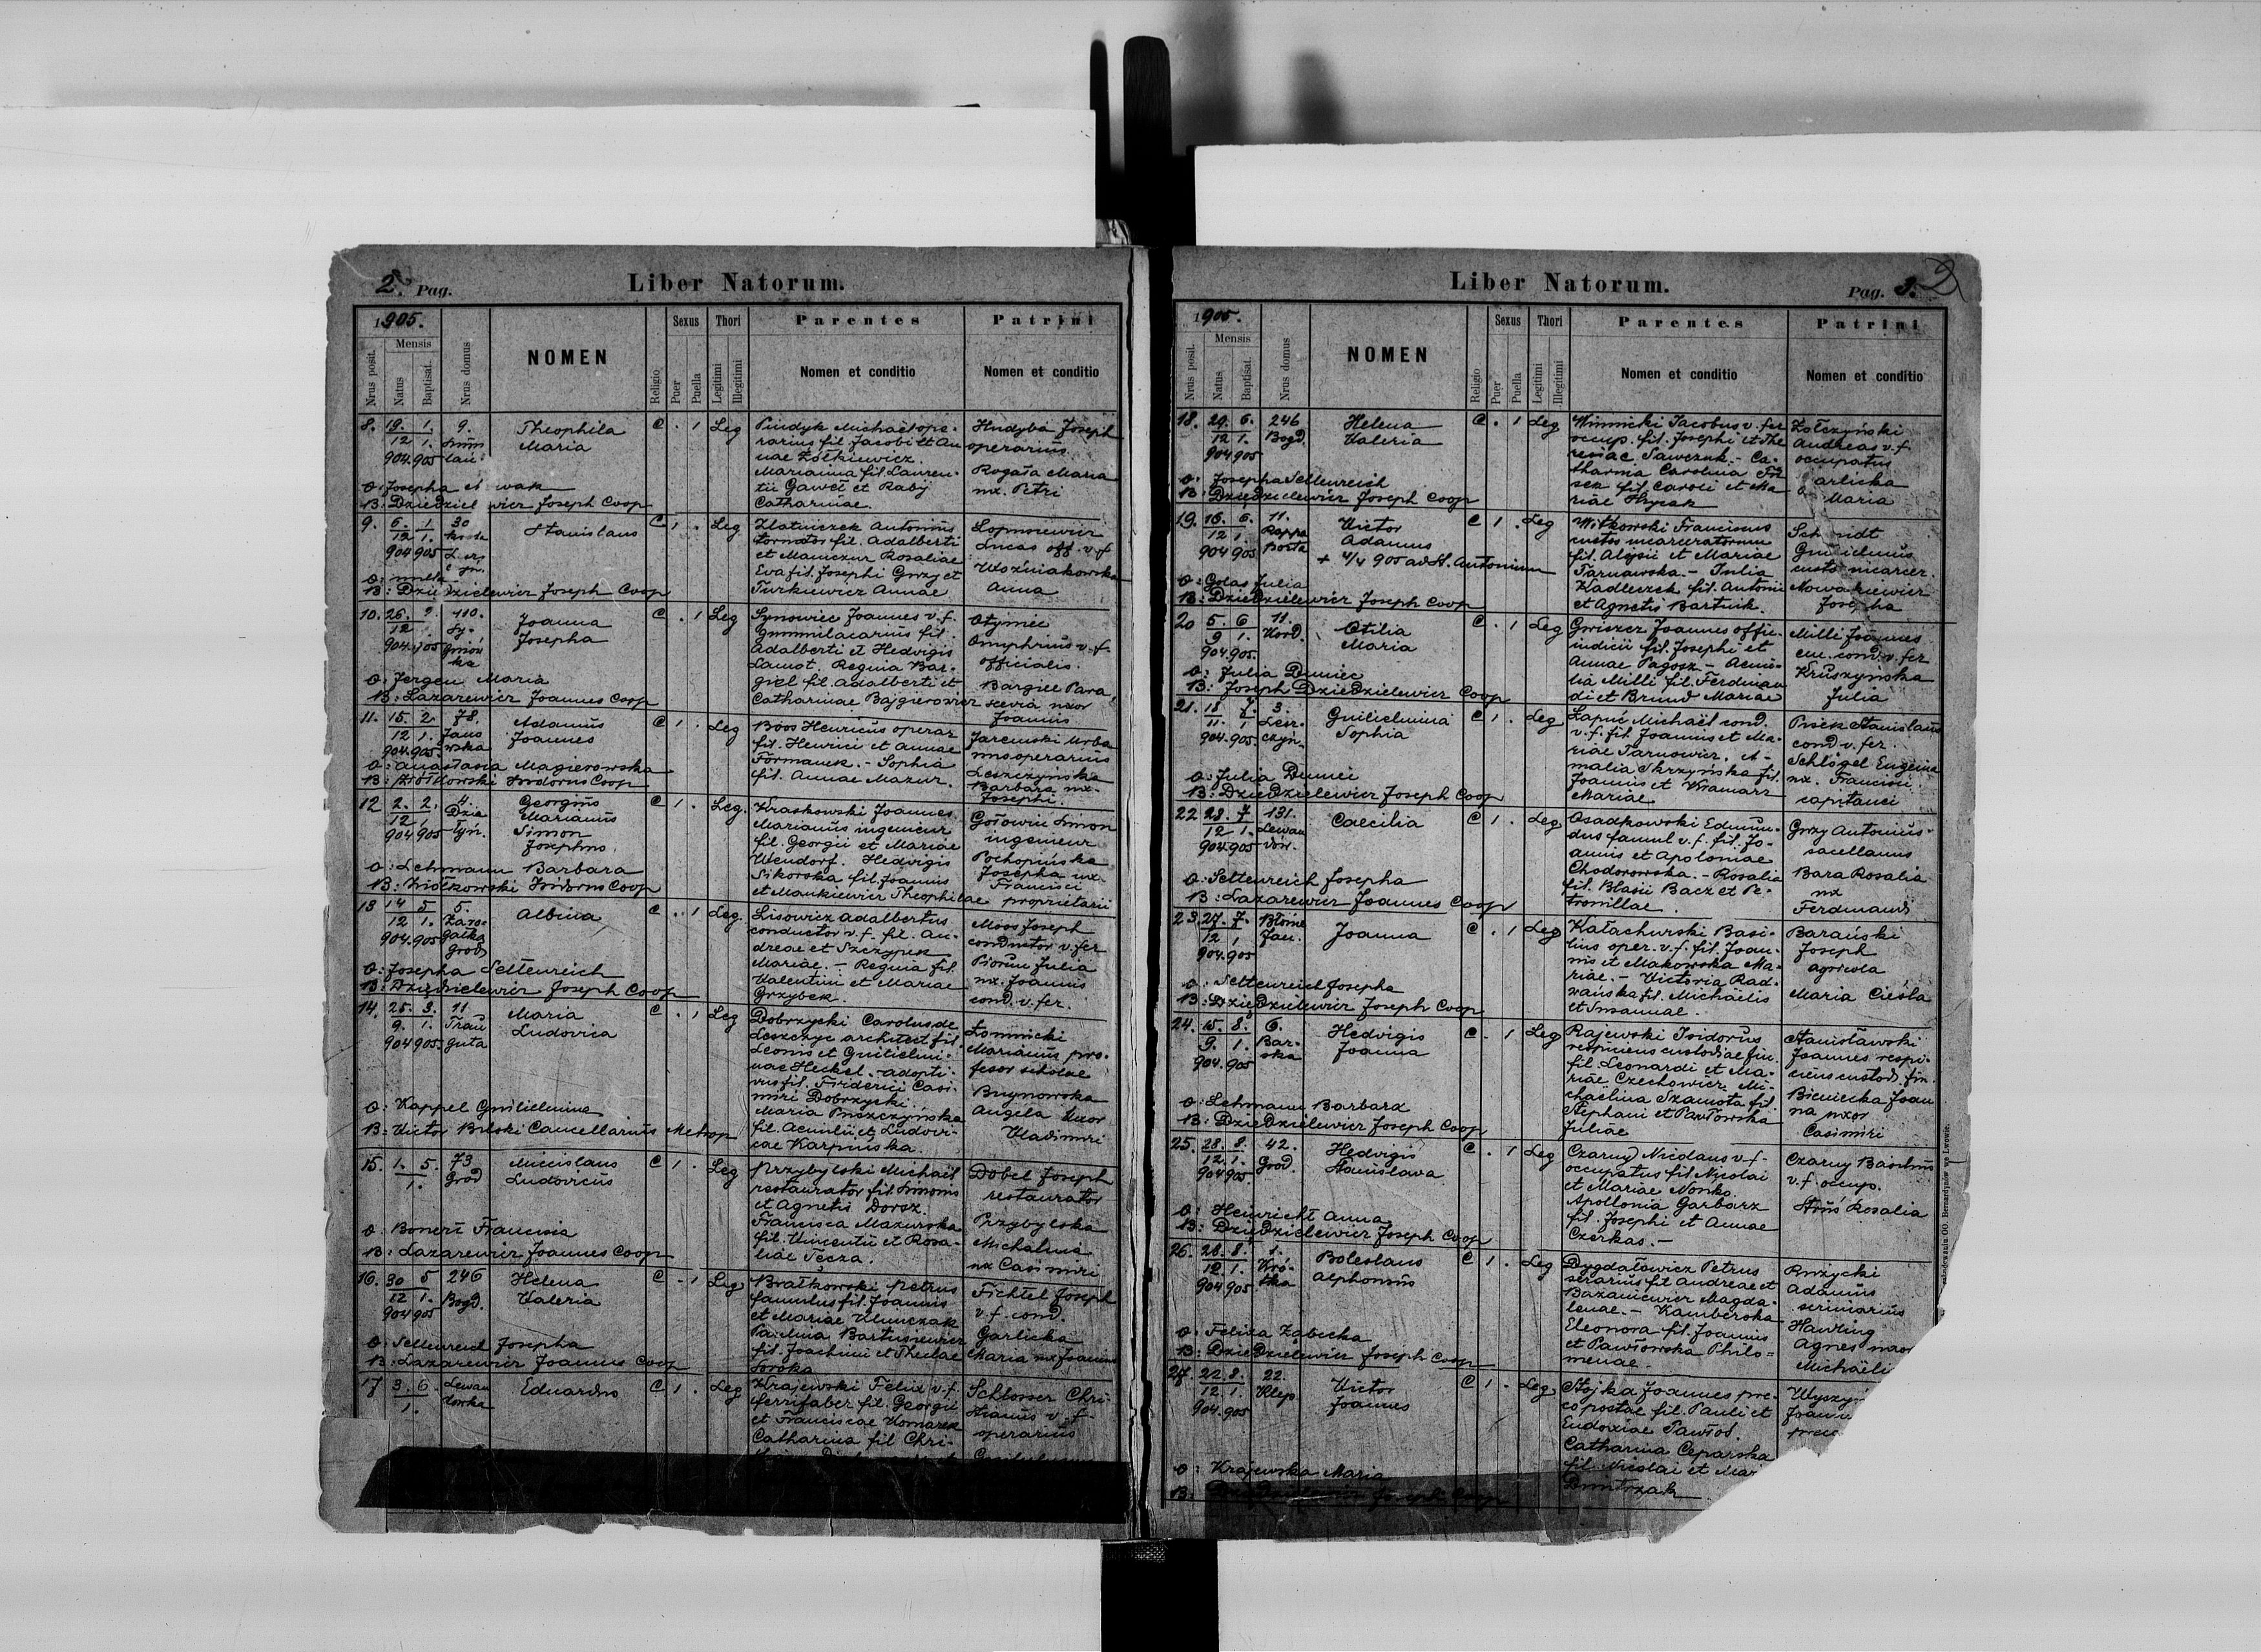 2. Pag.
Liber Natorum.
1905.
Mensis
Nrus posit.
Natus
Baptisat.
Nrus domus
NOMEN
Religio
Sexus
Puer
Puella
Thori
Legitimi
Illegitimi
Parentes
Nomen et conditio
Patrini
Nomen et conditio
8. 19. 1. 9. Theophila C . 1 Leg Pindyk Michaël ope- Hndyba Joseph
12 1. Maria rarius fil. Jacobi et An operarius.
904 905 nae Żółkiewicz. Rogata Maria
Marianna fil. Lauren- ux. Petri
O: Josepha tii Gaweł et Rabij
B: Joseph Coop Catharinae.
9. 6. 1 30 Stanislaus C 1 . Leg Antonius
12 1. tornator fil. Adalberti Lucas off. v. f.
904 905 et Rosaliae Woźniakowska
O: nulla Eva fil. Josephi Grzy et Anna
B: Dziedzielewicz Joseph Coop Turkiewicz Annae
10. 26. 2. 110. Joanna C . 1 Leg Synowiec Joannes v. f.
12 1. Josepha fil.
904 905 Adalberti et Hedvigis Onuphrius v. f.
Lamot. Regina Bar- officialis.
O: Jergen Maria giel fil. Adalberti et Bargiel Para
B: Łazarewicz Joannes Coop Catharinae Bajgierowicz scevia uxor
Joannis
11. 15. 2. 78. Adamus C 1 . Leg Boos Henricus operar
12 1. Jano Joannes fil. Henrici et Annae Urba
904. 905. wska Formanek. - Sophia nus operarius
O: Anastasia Magierowska fil. Annae Mazur. Leszczyńska
B: Ziółkowski Isidorus Coop Barbara ux.
Josephi.
12 2. 2. 4. Georgius C 1 . Leg. Kraskowski Joannes
12 1. Dzia Marianus Marianus ingenieur Simon
904 905 łyń. Simon fil. Georgii et Mariae ingenieur
Josephus. Wendorf. Hedvigis Pochopińska
O: Lehmann Barbara Sikorska fil. Joannis Josepha ux.
B: Ziółkowski Isidorus Coop et Mankiewicz Theophilae Francisci
proprietarii
13 14 5 5. Albina C . 1 Leg. Lisowicz Adalbertus Moos Joseph
12 1. conductor v. f. fil. An- conductor v. fer
904. 905 dreae et Szczypek Julia
Mariae. - Regina fil. ux. Joannis
O: Josepha Seltenreich Valentini et Mariae cond. v. fer.
B: Dziedzielewicz Joseph Coop Grzybek.
14. 25. 3. 11 Maria C . 1 Leg Dobrzycki Carolus de Łomnicki
9. 1. Trau Ludovica Leszczyc architect fil. Marianus pro-
904 905. guta Leonis et Guilielmi- fesor scholae
nae Heckel. - adopti-
vus fil. Friderici Casi- Bugnowska
miri Dobrzycki. Angela uxor
O: Kappel Guilielmina Maria Puszczyńska Vladimiri
B: Victor Bilski Cancellarius Metrop fil. Aemilii et Ludovi-
cae Karpińska.
15. 1. 5. 73 Miecislaus C 1 . Leg Przybylski Michaël Dobel Joseph
1. Grod Ludovicus restaurator fil. Simonis restaurator
et Agnetis Dorsz.
O: Bonert Francisca Francisca Mazurska Przybylska
B: Łazarewicz Joannes Coop fil. Vincentii et Rosa- Michalina
liae Tęcza. ux Casimiri
16. 30 5 246 Helena C . 1 Leg Bratkowski Petrus Fichtel Joseph
12 1. Bogd. Valeria famulus fil. Joannis v. f. cond.
904 905 et Mariae Klimczak Garlicka
O: Seltenreich Josepha Paulina Bartusiewicz Maria ux Joannis
B: Łazarewicz Joannes Coop fil. Joachimi et Theclae
Soroka
17 3. 6. Lewan Eduardus C 1 . Leg Krajewski Felix v. f. Schlosser Chri-
1. dowka ferrifaber fil. Georgii stianus v. f.
et Franciscae Komarek operarius
Catharina fil Chri-
Liber Natorum.
Pag. 3. 2
1905.
Mensis
Nrus posit.
Natus
Baptisat.
Nrus domus
NOMEN
Religio
Sexus
Puer
Puella
Thori
Legitimi
Illegitimi
Parentes
Nomen et conditio
Patrini
Nomen et conditio
18. 29. 6. 246 Helena C . 1 Leg Winnicki Jacobus v. fer Żołczyński
12 1. Bogd. Valeria occup. fil. Josephi et The Andreas v. f.
904 905 resiae Sawczuk. - Ca- occupatus
O: Josepha Seltenreich tharina Carolina arlicka
B: Dziedzielewicz Joseph Coop sek fil. Caroli et Ma Maria
riae Hrycak
19. 16. 6. 11. Victor C 1 . Leg Witkowski Franciscus Sch midt
12 1. Rappa Adamus custos incarceratorum Guilielmus
904 905 porta + 4/4 905 ad St. Antonium fil. Aloysii et Mariae custo incarcer.
O: Golas Julia Tarnawska. - Julia Nowakiewicz
B: Dziedzielewicz Joseph Coop Zadleczek fil. Antonii Josepha
et Agnetis Bartnik.
20 5. 6 11. Otilia C . 1 Leg Gwiszcz Joannes offic. Milli Joannes
9 1. Kord. Maria iudicii fil. Josephi et em. cond. v. fer
904. 905. Annae Pagosz - Aemi- Kruszyńska
O: Julia Dumic lia Milli fil. Ferdinan Julia
B: Joseph Dziedzielewicz Coop di et Brund Mariae
21. 18 7. 3. Guilielmina C 1 . Leg Łapuć Michaël cond. Prock Stanislaus
11. 1 Lesz- Sophia v. f. fil. Joannis et Ma- cond. v. fer.
904. 905. czyń. riae Tarnowicz. A- Schlögel Eugenia
O: Julia Dumic malia Skrzyńska fil. ux. Francisci
B: Dziedzielewicz Joseph Coop Joannis et Kramarz capitanei
Mariae.
22 28. 7 131. Caecilia C 1 . Leg Osadkowski Edmun- Grzy Antonius
12 1. Lewan dus famul v. f. fil. Jo- sacellanus
904. 905 dow. annis et Apoloniae Bara Rosalia
O: Seltenreich Josepha Chodorowska. - Rosalia ux
B: Łazarewicz Joannes Coop fil. Blasii Bacz et Pe- Ferdinandi
tronillae.
23. 27. 7. Błonie Joanna C . 1 Leg Kałachurski Basi- Barański
12 1 Jan. lius oper. v. f. fil. Joan- Joseph
904. 905 nis et Makowska Ma- agricola
O: Seltenreich Josepha riae. - Victoria Rad- Maria Cieśla
B: Dziedzielewicz Joseph Coop wańska fil. Michaëlis
et Susannae.
24. 15. 8. 6. Hedvigis C . 1 Leg Rajewski Isidorus Stanisławski
9. 1. Bar- Joanna respiciens custodiae fin. Joannes respi-
904. 905 ska fil. Leonardi et Ma- ciens custod. fin.
riae Czechowicz. Mi- Bieniecka Joan
O: Lehmann Barbara chaëlina Szamota fil. na uxor
B: Dziedzielewicz Joseph Coop Stephani et Pawłowska Casimiri
Juliae
25. 28. 8. 42. Hedvigis C . 1 Leg Czarny Nicolaus v. f. Czarny Basilius
12 1. Grod. Stanislawa occupatus fil. Nicolai v. f. occup.
904 905. et Mariae Nosko. Rosalia
O: Heinricht Anna Apollonia Garbarz
B: Dziedzielewicz Joseph Coop fil. Josephi et Annae
Czerkas. -
26. 28. 8. 1. Boleslaus C 1 . Leg Dygdałowicz Petrus Ruzycki
12 1. Kró- Alphonsus serarius fil Andreae et Adamus
904 905 tka Bazaniewicz Magda- scriniarius
lenae. - Kamberska Hawling
O: Felixa Ząbecka Eleonora fil. Joannis Agnes uxor
B: Dziedzielewicz Joseph Coop et Pawłowska Philo- Michaëli
menae.
27. 22. 8. 22. Victor C 1 . Leg Stojka Joannes pre- Wyszyń
12. 1. Klep. Joannes co postae fil. Pauli et Joann
904. 905 Eudoxiae Pawłod.
Catharina Ceparska
O: Krajewska Maria fil. Nicolai et Mar
B: Dziedzielewicz Joseph Coop Dmitrzak
OO. Bernardynów we Lwowie.